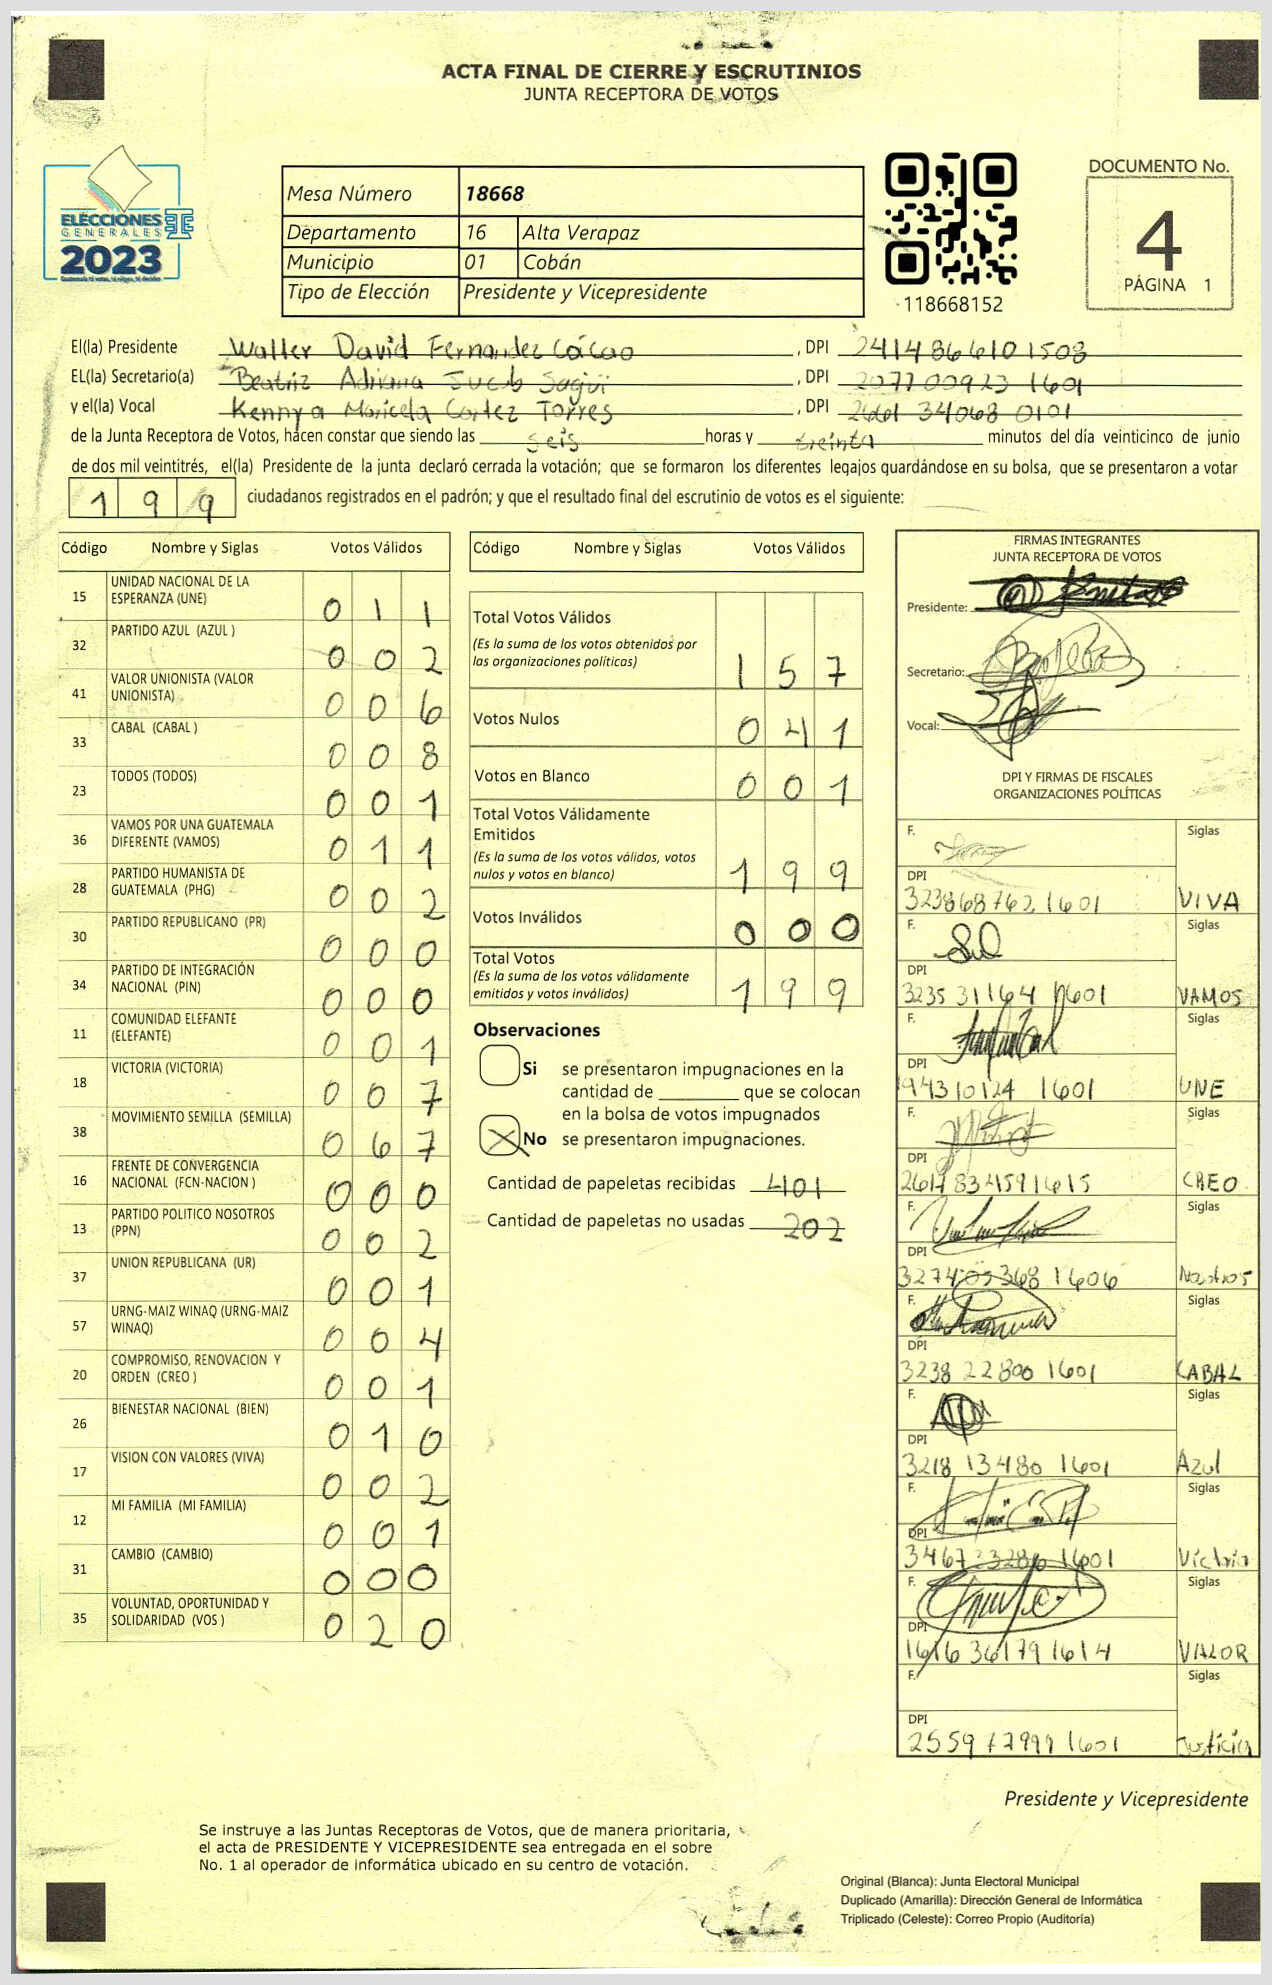 ACTA FINAL DE CIERRE Y ESCRUTINIOS
JUNTA RECEPTORA DE VOTOS
ELECCIONES
GENERALES
2023
Mesa Número 18668
Departamento 16 Alta Verapaz
Municipio 01 Cobán
Tipo de Elección Presidente y Vicepresidente
118668152
DOCUMENTO No.
4
PÁGINA 1
El(la) Presidente Walter David Fernandez Cácao , DPI 2414866101508
EL(la) Secretario(a) Beatriz Adriana , DPI 207700923 1601
y el(la) Vocal Kennya Maricela Cortez Torres , DPI 2661 34068 0101
de la Junta Receptora de Votos, hacen constar que siendo las seis horas y treinta minutos del día veinticinco de junio
de dos mil veintitrés, el(la) Presidente de la junta declaró cerrada la votación; que se formaron los diferentes legajos guardándose en su bolsa, que se presentaron a votar
199 ciudadanos registrados en el padrón; y que el resultado final del escrutinio de votos es el siguiente:
Código Nombre y Siglas Votos Válidos
15 UNIDAD NACIONAL DE LA ESPERANZA (UNE) 0 1 1
32 PARTIDO AZUL (AZUL ) 0 0 2
41 VALOR UNIONISTA (VALOR UNIONISTA) 0 0 6
33 CABAL (CABAL ) 0 0 8
23 TODOS (TODOS) 0 0 1
36 VAMOS POR UNA GUATEMALA DIFERENTE (VAMOS) 0 1 1
28 PARTIDO HUMANISTA DE GUATEMALA (PHG) 0 0 2
30 PARTIDO REPUBLICANO (PR) 0 0 0
34 PARTIDO DE INTEGRACIÓN NACIONAL (PIN) 0 0 0
11 COMUNIDAD ELEFANTE (ELEFANTE) 0 0 1
18 VICTORIA (VICTORIA) 0 0 7
38 MOVIMIENTO SEMILLA (SEMILLA) 0 6 7
16 FRENTE DE CONVERGENCIA NACIONAL (FCN-NACION ) 0 0 0
13 PARTIDO POLITICO NOSOTROS (PPN) 0 0 2
37 UNION REPUBLICANA (UR) 0 0 1
57 URNG-MAIZ WINAQ (URNG-MAIZ WINAQ) 0 0 4
20 COMPROMISO, RENOVACION Y ORDEN (CREO ) 0 0 1
26 BIENESTAR NACIONAL (BIEN) 0 1 0
17 VISION CON VALORES (VIVA) 0 0 2
12 MI FAMILIA (MI FAMILIA) 0 0 1
31 CAMBIO (CAMBIO) 0 0 0
35 VOLUNTAD, OPORTUNIDAD Y SOLIDARIDAD (VOS ) 0 2 0
Código Nombre y Siglas Votos Válidos
Total Votos Válidos
(Es la suma de los votos obtenidos por
las organizaciones políticas) 1 5 7
Votos Nulos 0 4 1
Votos en Blanco 0 0 1
Total Votos Válidamente
Emitidos
(Es la suma de los votos válidos, votos
nulos y votos en blanco) 1 9 9
Votos Inválidos 0 0 0
Total Votos
(Es la suma de los votos válidamente
emitidos y votos inválidos) 1 9 9
Observaciones
Si se presentaron impugnaciones en la
cantidad de ________ que se colocan
en la bolsa de votos impugnados
No se presentaron impugnaciones.
Cantidad de papeletas recibidas 401
Cantidad de papeletas no usadas 202
FIRMAS INTEGRANTES
JUNTA RECEPTORA DE VOTOS
Presidente:
Secretario:
Vocal:
DPI Y FIRMAS DE FISCALES
ORGANIZACIONES POLÍTICAS
F. Siglas
DPI
323868762 1601 VIVA
F. Siglas
DPI
3235 31164 1601 VAMOS
F. Siglas
DPI
1601 UNE
F. Siglas
DPI
2617834591615 CREO
F. Siglas
DPI
327405368 1606 Nosotros
F. Siglas
DPI
3238 22800 1601 CABAL
F. Siglas
DPI
3218 13480 1601 Azul
F. Siglas
DPI
3467 23280 1601 Victoria
F. Siglas
DPI
1616 36179 1614 VALOR
F. Siglas
DPI
2559 77999 1601 Justicia
Presidente y Vicepresidente
Se instruye a las Juntas Receptoras de Votos, que de manera prioritaria,
el acta de PRESIDENTE Y VICEPRESIDENTE sea entregada en el sobre
No. 1 al operador de informática ubicado en su centro de votación.
Original (Blanca): Junta Electoral Municipal
Duplicado (Amarilla): Dirección General de Informática
Triplicado (Celeste): Correo Propio (Auditoría)